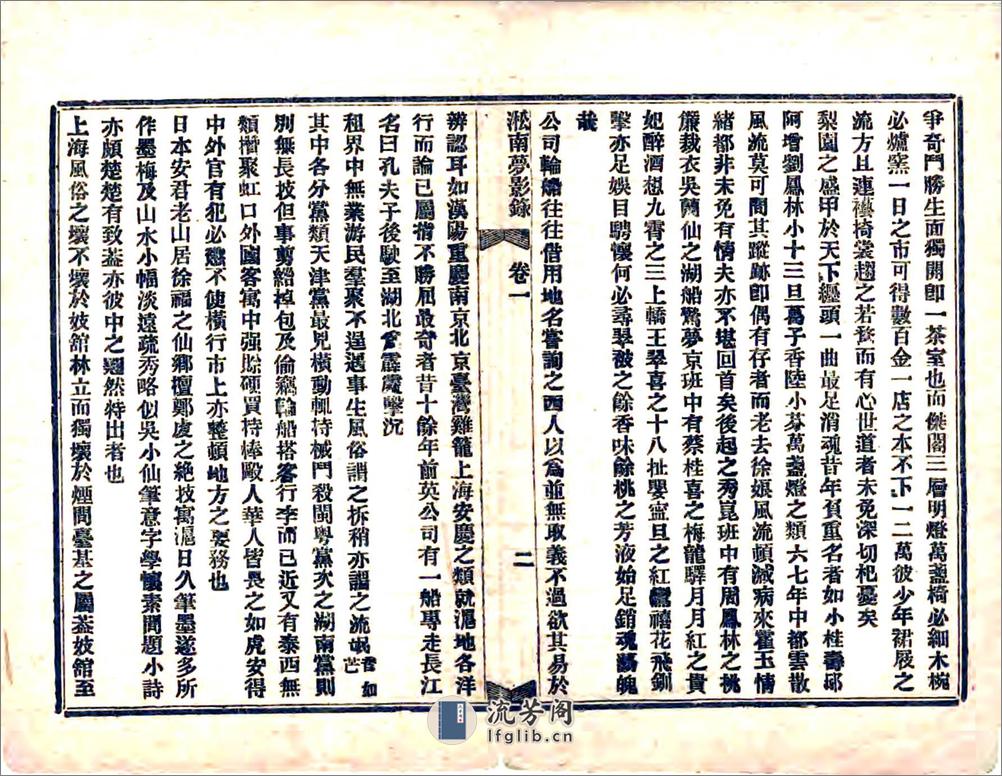 爭奇鬥勝生面獨開卽一茶室也而傑閣三層明燈萬盞椅必細木椀
必爐窯一日之市可得數百金一店之本不下一二萬彼少年裙屐之
流方且連襼掎裳趨之若鶩而有心世道者未免深切杞憂矣
梨園之盛甲於天下纏頭一曲最足消魂昔年負重名者如小桂壽邱
阿增劉鳳林小十三旦葛子香陸小芬萬盞燈之類六七年中都雲散
風流莫可問其蹤跡卽偶有存者而老去徐娘風流頓減病來霍玉情
緒都非未免有情夫亦不堪回首矣後起之秀崑班中有周鳳林之桃
簾裁衣吳蘭仙之湖船驚夢京班中有蔡桂喜之梅龍驛月月紅之貴
妃醉酒想九霄之三上轎王翠喜之十八扯嬰寗旦之紅鸞禧花飛釧
擊亦足娛目騁懷何必尋翠被之餘香味餘桃之芳液始足銷魂蕩魄
哉
公司輪船往往借用地名嘗詢之西人以爲並無取義不過欲其易於
淞南夢影錄 卷一 二
辨認耳如漢陽重慶南京北京臺灣雞籠上海安慶之類就滬地各洋
行而論已屬指不勝屈最奇者昔十餘年前英公司有一船專走長江
名曰孔夫子後駛至湖北官霹靂擊沉
租界中無業游民羣聚不逞遇事生風俗謂之拆稍亦謂之流氓音如芒
其中各分黨類天津黨最兇橫動輒持械鬥殺閩粵黨次之湖南黨則
別無長技但事剪綹掉包及偷竊輪船搭客行李而已近又有泰西無
類攢聚虹口外國客寓中强賒硬買持棒毆人華人皆畏之如虎安得
中外官有犯必懲不使橫行市上亦整頓地方之要務也
日本安君老山居徐福之仙鄉擅鄭虔之絕技寓滬日久筆墨遂多所
作墨梅及山水小幅淡遠疏秀略似吳小仙筆意字學懷素間題小詩
亦頗楚楚有致蓋亦彼中之翹然特出者也
上海風俗之壞不壞於妓館林立而獨壞於煙間臺基之屬蓋妓館至
流芳阁
lfglib.cn